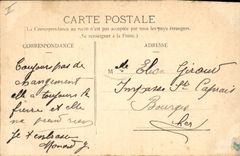 CARTE POSTALE
La Correspondance au recto n'est pas acceptée par tous les pays étrangers.
(Se renseigner à la Poste.)
CORRESPONDANCE
ADRESSE
Toujours pas de
changement
elle a toujours la
fièvre et elle
ne prend rien
Je t'embrasse
Mlle Elisa Giraud
Impasse St Caprais
Bourges
Cher